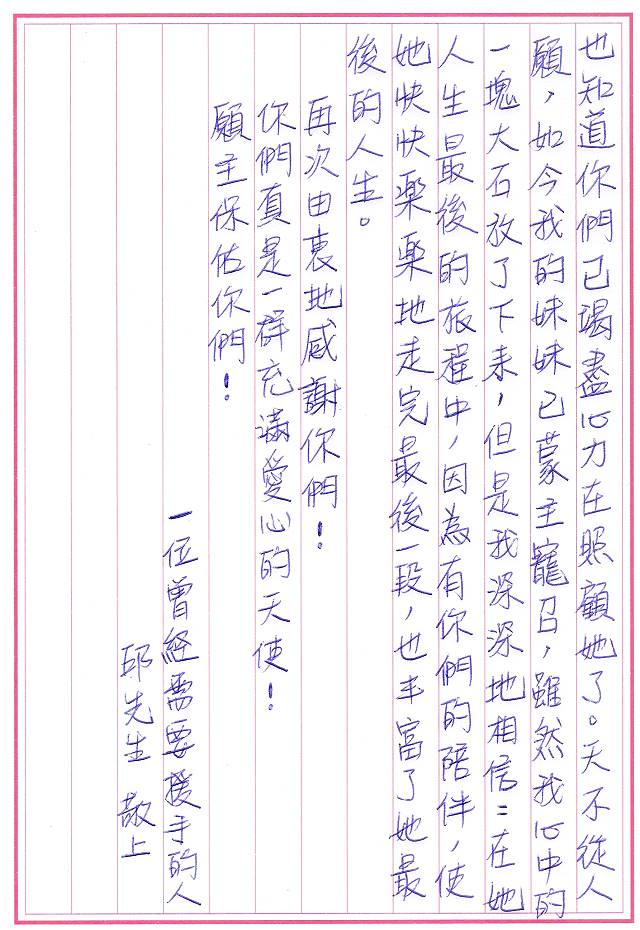 也知道你們已竭盡心力在照顧她了。天不從人
願，如今我的妹妹已蒙主寵召，雖然我心中的
一塊大石放了下來，但是我深深地相信：在她
人生最後的旅程中，因為有你們的陪伴，使
她快快樂樂地走完最後一段，也丰富了她最
後的人生。
再次由衷地感謝你們！
你們真是一群充滿愛心的天使！
願主保佑你們！
一位曾經需要援手的人
邱先生 敬上